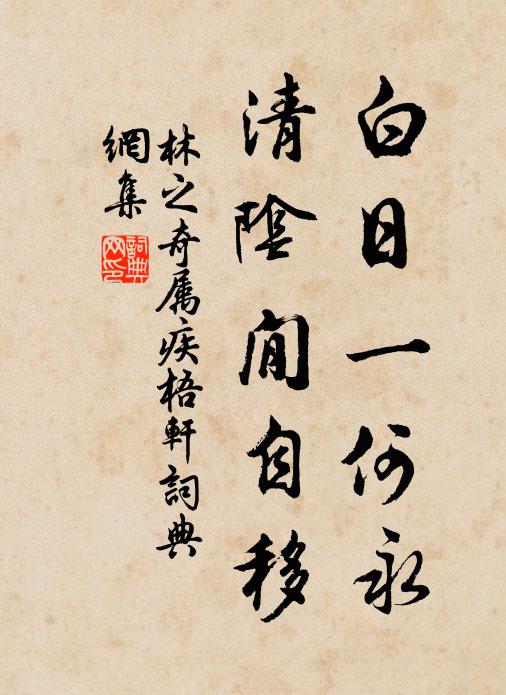 白日一何永
清陰閒自移
林之奇属疾梧軒詞典
網集
詞典网印